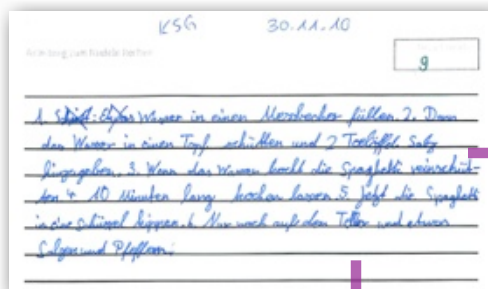 KSG 30.11.10
Anleitung zum Nudeln kochen
9
1. Wasser in einen Messbecher füllen. 2. Dann
das Wasser in einen Topf schütten und 2 Teelöffel Salz
hinzugeben. 3. Wenn das Wasser kocht die Spaghetti reinschüt-
ten 4. 10 Minuten lang kochen lassen 5. jetzt die Spaghetti
in eine schüssel kippen. 6. Nur noch auf den Teller und etwas
Salzen und Pfeffern!